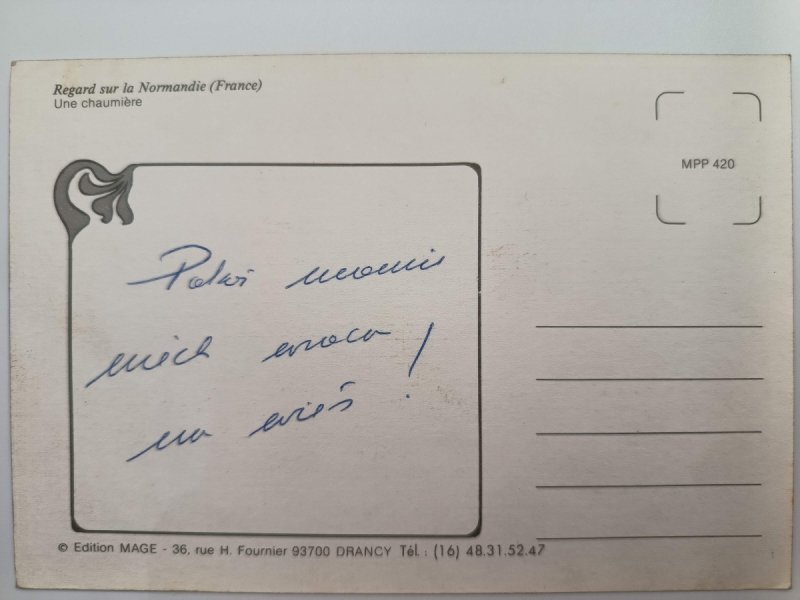 Regard sur la Normandie (France)
Une chaumière
MPP 420
Pokaż mamie
niech wraca
na wieś!
© Edition MAGE - 36, rue H. Fournier 93700 DRANCY Tél. : (16) 48.31.52.47